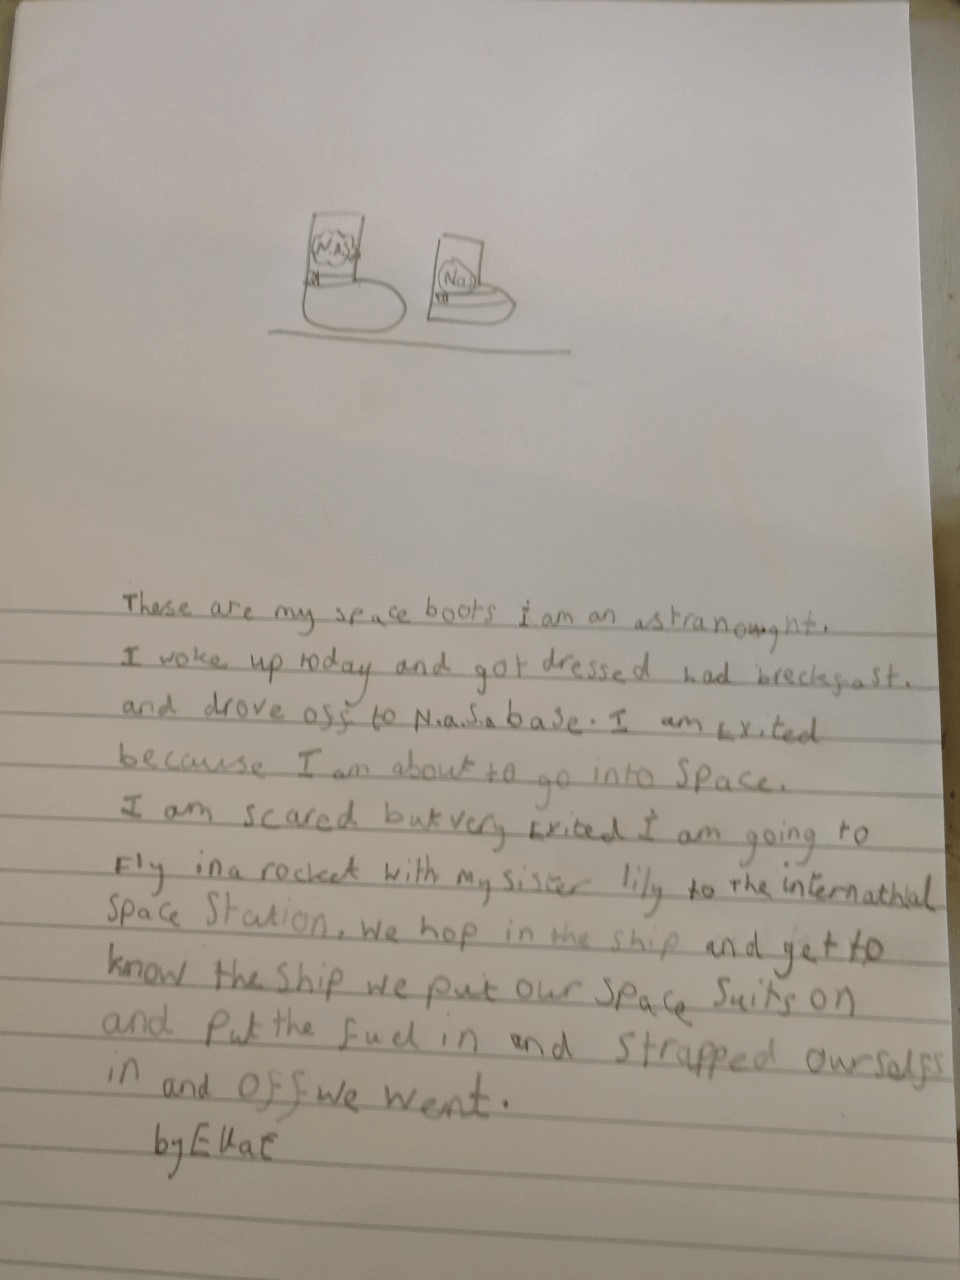 NA
Na
These are my space boots i am an astranowght.
I woke up today and got dressed had breckfast.
and drove off to N.a.S.a base. I am Exited
because I am about to go into Space.
I am scared but very Exited I am going to
Fly in a rocket with my sister lily to the internathial
Space Station. We hop in the ship and get to
know the ship we put our space suits on
and put the fuel in and strapped ourselfs
in and off we went.
by